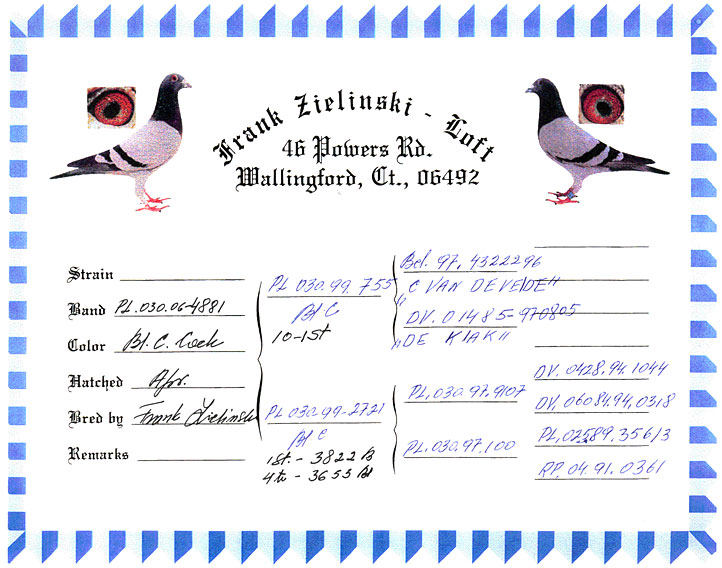 Frank Zielinski - Loft
46 Powers Rd.
Wallingford, Ct., 06492
Strain
Band PL.030.06-4881
Color Bl. C. Cock
Hatched Apr.
Bred by Frank Zielinski
Remarks
PL 030.99 755
Bl C
10-1st
PL 030.99-2721
Bl C
1st. - 3822 B
4th - 3655 Bd
Bel. 97. 4322296
"C VAN DE VEIDE"
DV. 01485-970805
"DE KIAK"
PL.030.97.9107
PL.030.97.100
DV. 0428.94.1044
DV. 06084.94.0318
PL.02589.35613
RP. 04.91.0361